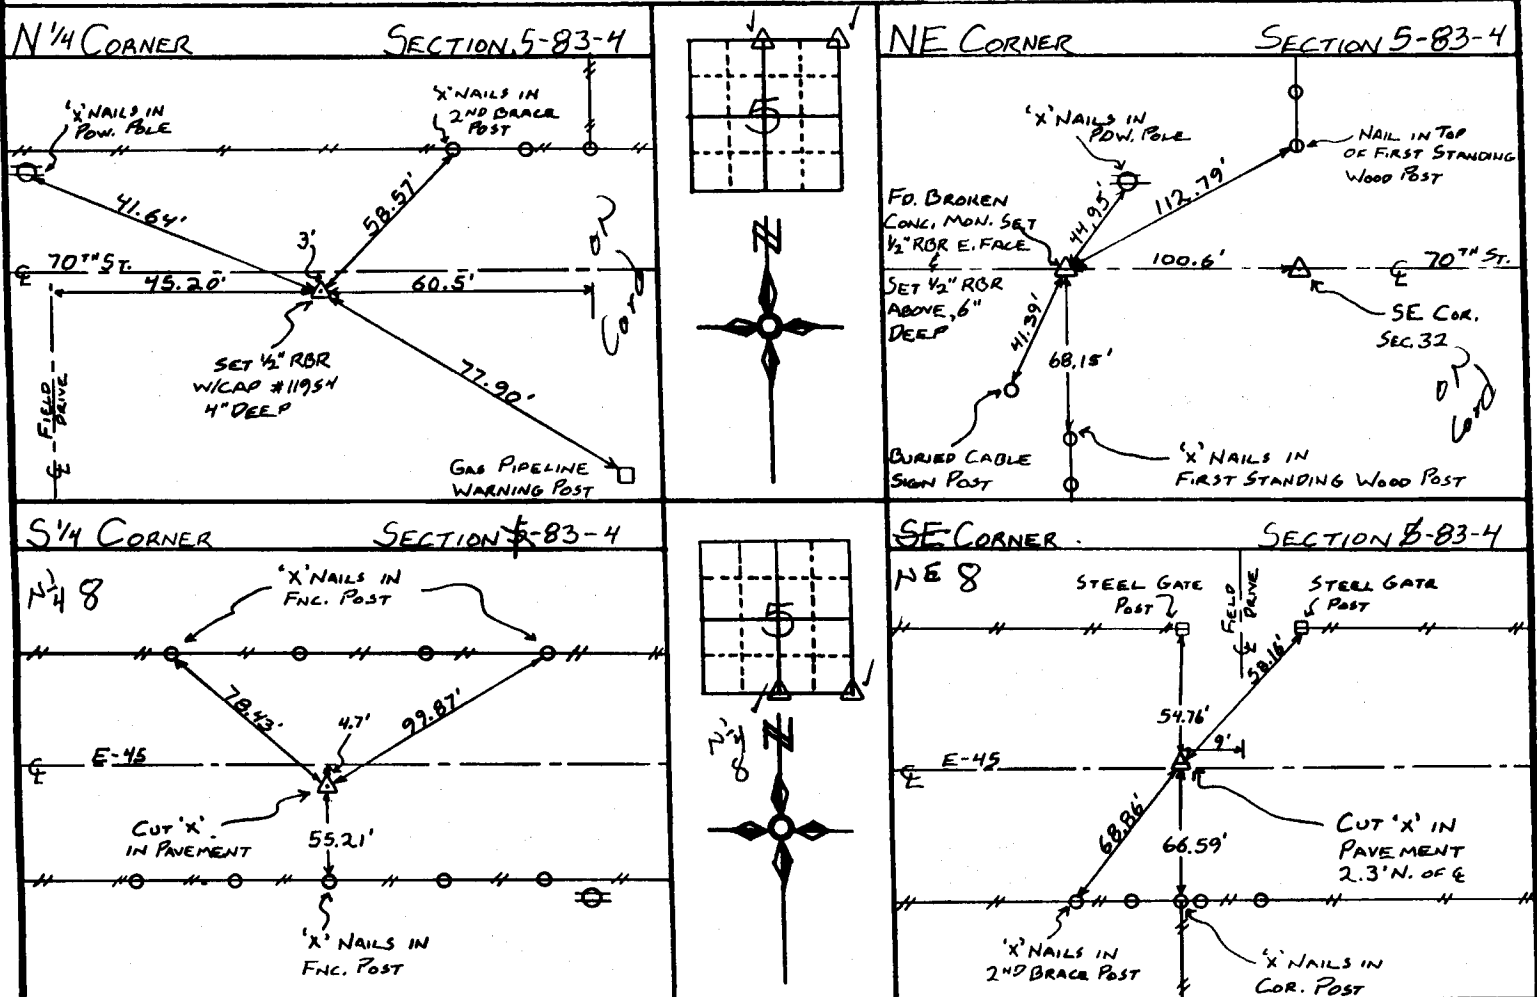 N 1/4 CORNER SECTION 5-83-4
'X' NAILS IN
POW. POLE
'X' NAILS IN
2ND BRACE
POST
41.64'
58.57'
3'
70TH ST.
℄
45.20'
60.5'
OR
Cord
SET 1/2" RBR
W/CAP #11954
4" DEEP
77.90'
FIELD
DRIVE
℄
GAS PIPELINE
WARNING POST
5
N
NE CORNER SECTION 5-83-4
'X' NAILS IN
POW. POLE
NAIL IN TOP
OF FIRST STANDING
WOOD POST
FD. BROKEN
CONC. MON. SET
1/2" RBR E. FACE
&
SET 1/2" RBR
ABOVE, 6"
DEEP
44.95'
112.79'
100.6'
℄ 70TH ST.
SE COR.
SEC. 32
OR
Cord
41.39'
68.15'
BURIED CABLE
SIGN POST
'X' NAILS IN
FIRST STANDING WOOD POST
S 1/4 CORNER SECTION 5-83-4
N 1/4 8
'X' NAILS IN
FNC. POST
78.43'
99.87'
4.7'
℄ E-45
CUT 'X'
IN PAVEMENT
55.21'
'X' NAILS IN
FNC. POST
5
N
8
SE CORNER SECTION 5-83-4
NE 8
STEEL GATE
POST
FIELD
DRIVE
℄
STEEL GATE
POST
58.16'
54.76'
9'
℄ E-45
68.86'
66.59'
CUT 'X' IN
PAVEMENT
2.3' N. OF ℄
'X' NAILS IN
2ND BRACE POST
'X' NAILS IN
COR. POST